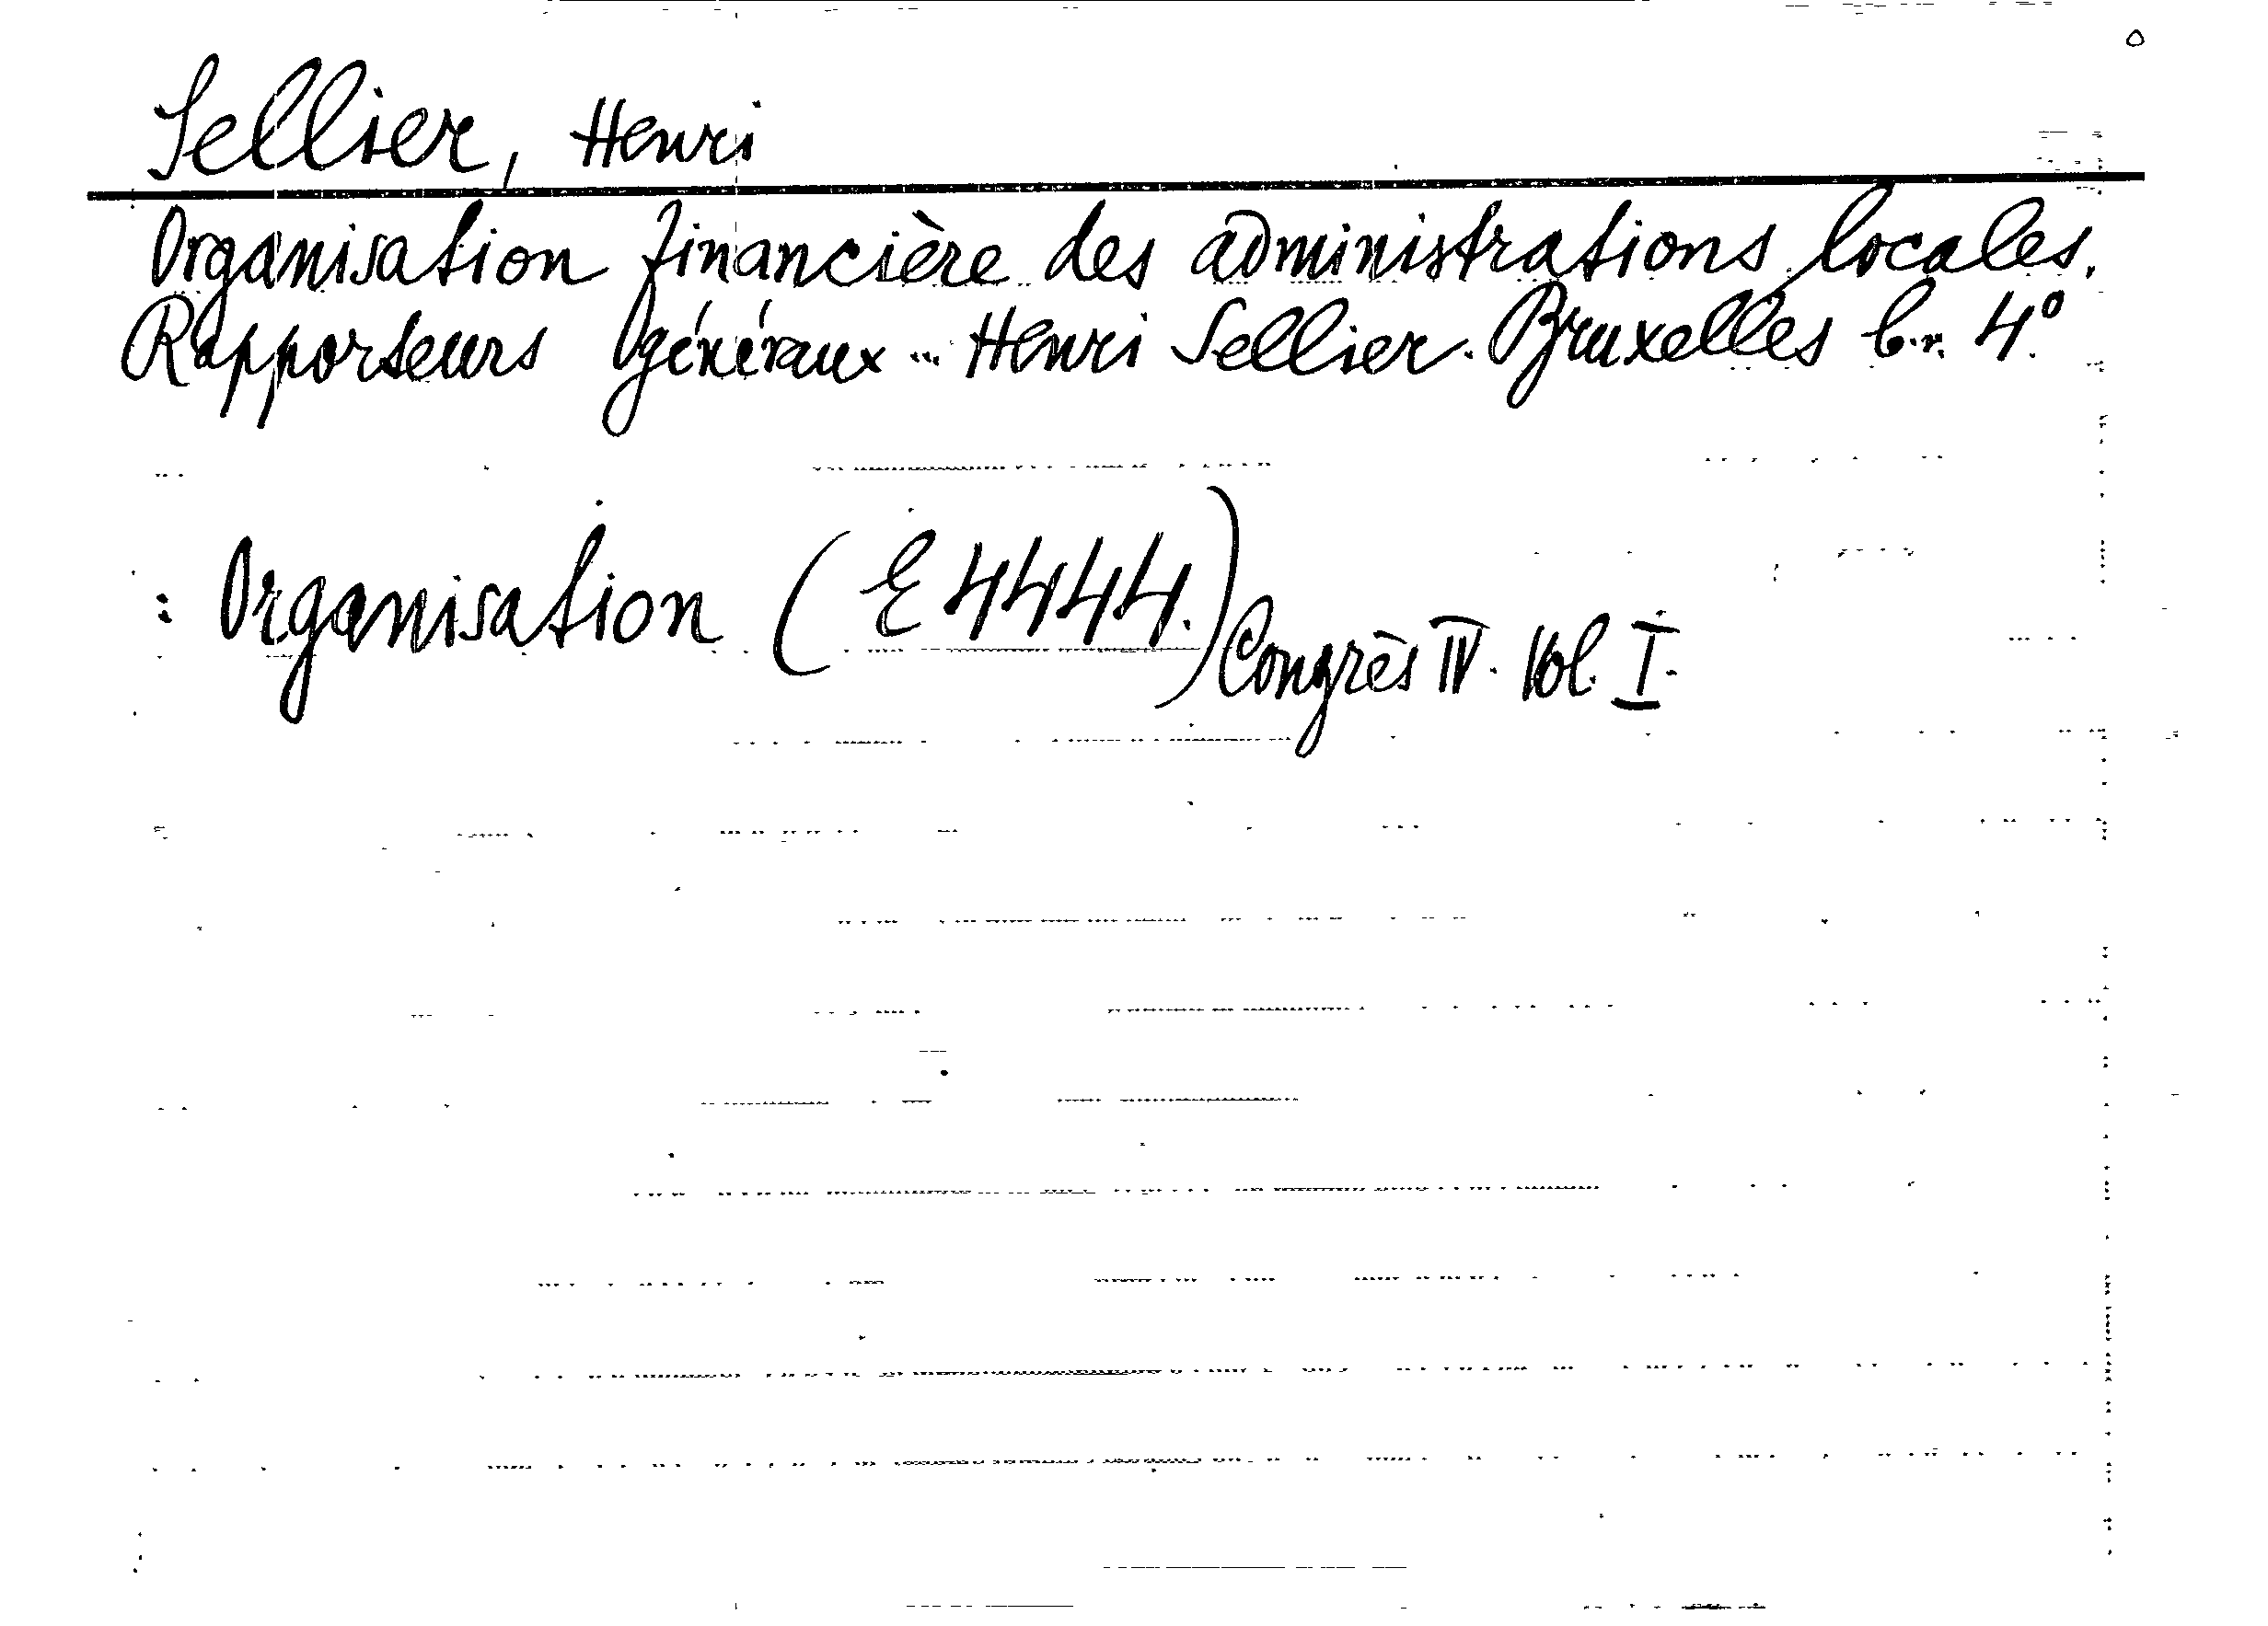 Sellier, Henri
Organisation financière des administrations locales.
Rapporteurs généraux ... Henri Sellier. Bruxelles b.r. 4°.
: Organisation (E 4444.) Congrès IV. Vol. I.